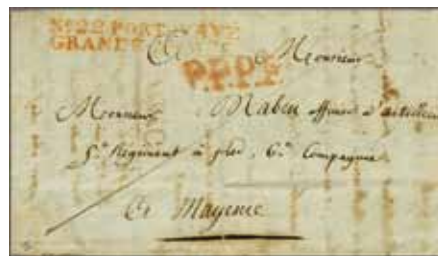 No. 22 PORT PAYÉ
GRANDE
P.P.P.P.
A Monsieur
Monsieur Maben officier d'artillerie
5e Regiment à pied, 6e Compagnie
A Mayence